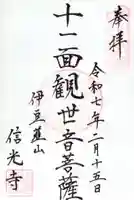 奉拝
令和七年二月十五日
十一面観世音菩薩
伊豆韮山
信光寺